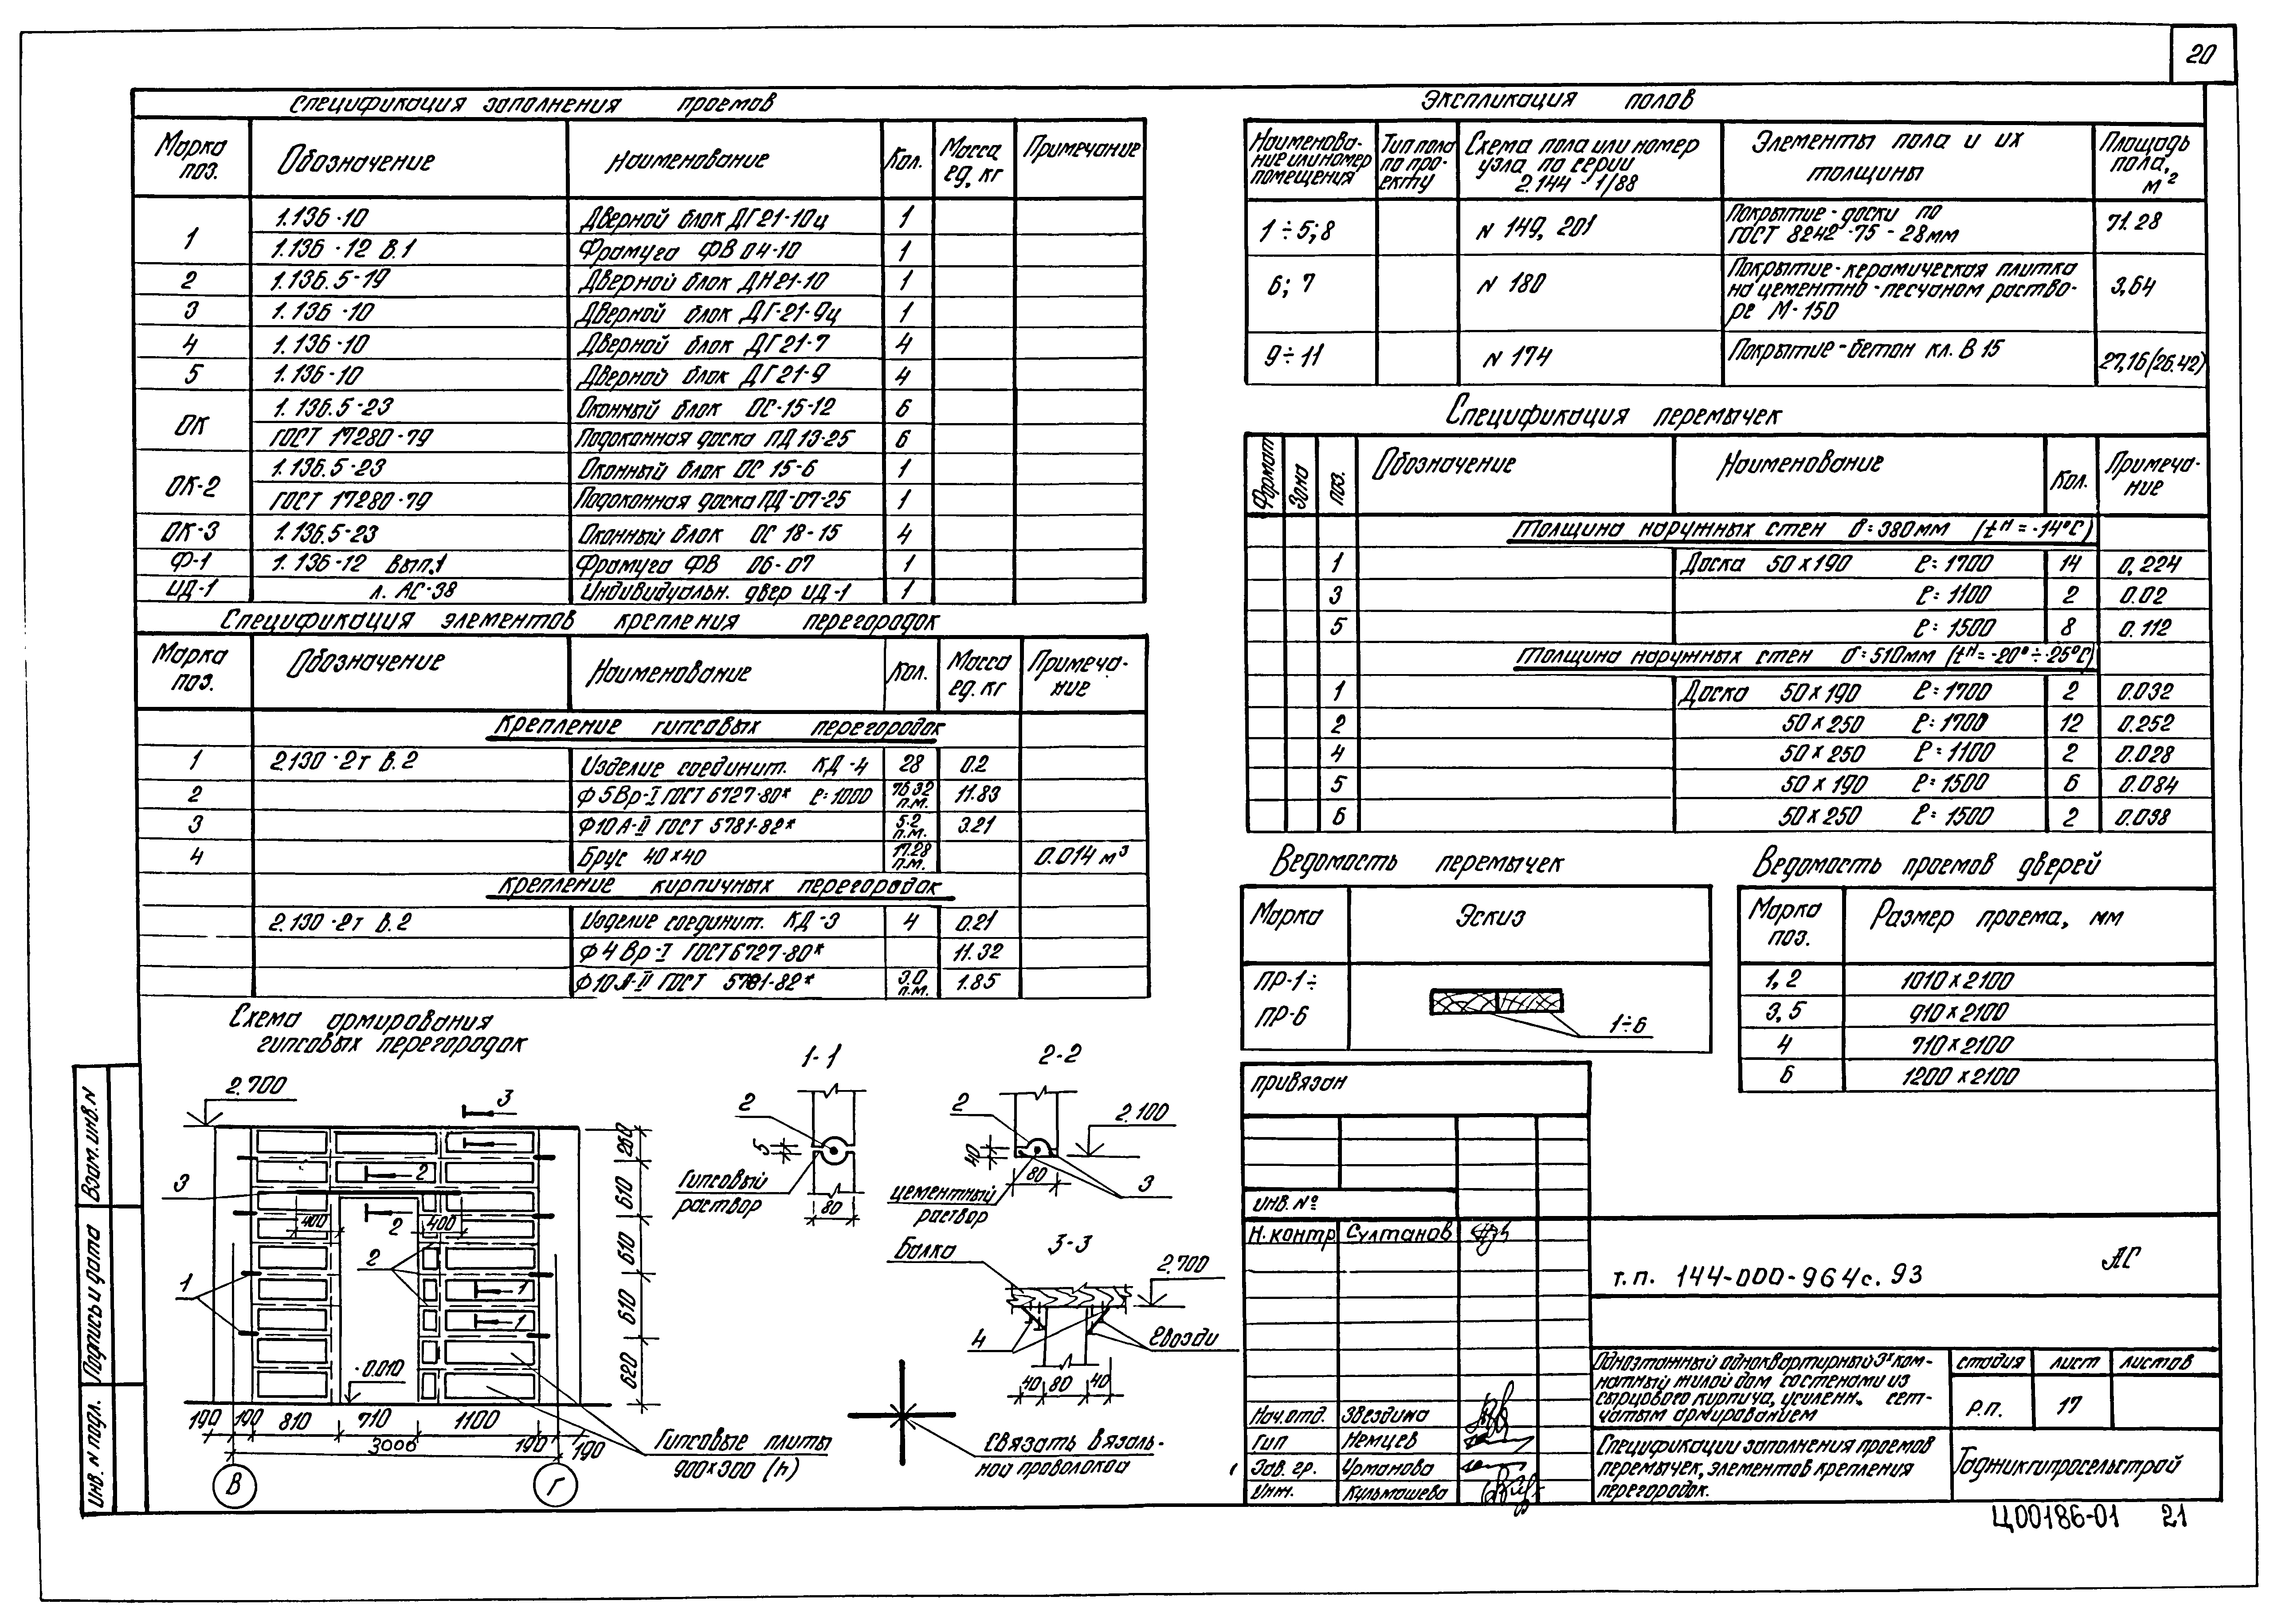 20
Спецификация заполнения проемов
Марка поз. Обозначение Наименование Кол. Масса ед, кг Примечание
1 1.136-10 Дверной блок ДГ21-10ц 1
1.136-12 В.1 Фрамуга ФВ 04-10 1
2 1.136.5-19 Дверной блок ДН21-10 1
3 1.136-10 Дверной блок ДГ-21-9ц 1
4 1.136-10 Дверной блок ДГ21-7 4
5 1.136-10 Дверной блок ДГ21-9 4
ОК 1.136.5-23 Оконный блок ОС-15-12 6
ГОСТ 17280-79 Подоконная доска ПД 13-25 6
ОК-2 1.136.5-23 Оконный блок ОС 15-6 1
ГОСТ 17280-79 Подоконная доска ПД-07-25 1
ОК-3 1.136.5-23 Оконный блок ОС 18-15 4
Ф-1 1.136-12 Вып.1 Фрамуга ФВ 06-07 1
ИД-1 л. АС-38 Индивидуальн. двер ИД-1 1
Спецификация элементов крепления перегородок
Марка поз. Обозначение Наименование Кол. Масса ед. кг Примеча-ние
Крепление гипсовых перегородок
1 2.130-2т В.2 Изделие соединит. КД-4 28 0.2
2 Ф5Вр-I ГОСТ 6727-80* ℓ=1000 76.32 п.м. 11.83
3 Ф10А-II ГОСТ 5781-82* 5.2 п.м. 3.21
4 Брус 40×40 17.28 п.м. 0.014 м³
Крепление кирпичных перегородок
2.130-2т В.2 Изделие соединит. КД-3 4 0.21
Ф4Вр-I ГОСТ 6727-80* 11.32
Ф10А-II ГОСТ 5781-82* 3.0 п.м. 1.85
Схема армирования
гипсовых перегородок
2.700
3
3
2
2
400
400
2
1
1
1
-0.010
260
610
610
610
620
190 190 810 710 1100 190 190
3000
В
Г
Гипсовые плиты
900×300 (h)
1-1
2
5
Гипсовый
раствор
80
2-2
2
2.100
40
80
цементный
раствор
3
3-3
Балка
2.700
4
Гвозди
40 80 40
Связать вязаль-
ной проволокой
Экспликация полов
Наименова-ние или номер помещения Тип пола по про-екту Схема пола или номер узла по серии 2.144-1/88 Элементы пола и их толщины Площадь пола, м²
1÷5;8 N 149, 201 Покрытие-доски по
ГОСТ 8242-75-28мм 71.28
6; 7 N 180 Покрытие-керамическая плитка
на цементно-песчаном раство-
ре М-150 3,64
9÷11 N 174 Покрытие-бетон кл. В 15 27,16(26.42)
Спецификация перемычек
Формат Зона Поз. Обозначение Наименование Кол. Примеча-ние
Толщина наружных стен δ=380мм (tн=-14°С)
1 Доска 50×190 ℓ=1700 14 0,224
3 ℓ=1100 2 0.02
5 ℓ=1500 8 0.112
Толщина наружных стен δ=510мм (tн=-20°÷-25°С)
1 Доска 50×190 ℓ=1700 2 0.032
2 50×250 ℓ=1700 12 0.252
4 50×250 ℓ=1100 2 0.028
5 50×190 ℓ=1500 6 0.084
6 50×250 ℓ=1500 2 0.038
Ведомость перемычек
Марка Эскиз
ПР-1÷
ПР-6
1÷6
Ведомость проемов дверей
Марка поз. Размер проема, мм
1, 2 1010×2100
3, 5 910×2100
4 710×2100
6 1200×2100
привязан
инв. №
Н.контр Султанов
Нач.отд. Звездина
Гип Немцев
Зав. гр. Урманова
Инж. Кульмашева
т.п. 144-000-964с.93
АС
Одноэтажный одноквартирный 3х ком-
натный жилой дом со стенами из
сырцового кирпича, усиленн. сет-
чатым армированием
стадия лист листов
Р.П. 17
Спецификации заполнения проемов
перемычек, элементов крепления
перегородок.
Таджикгипросельстрой
Ц00186-01 21
Взам. инв. N
Подпись и дата
Инв. N подл.